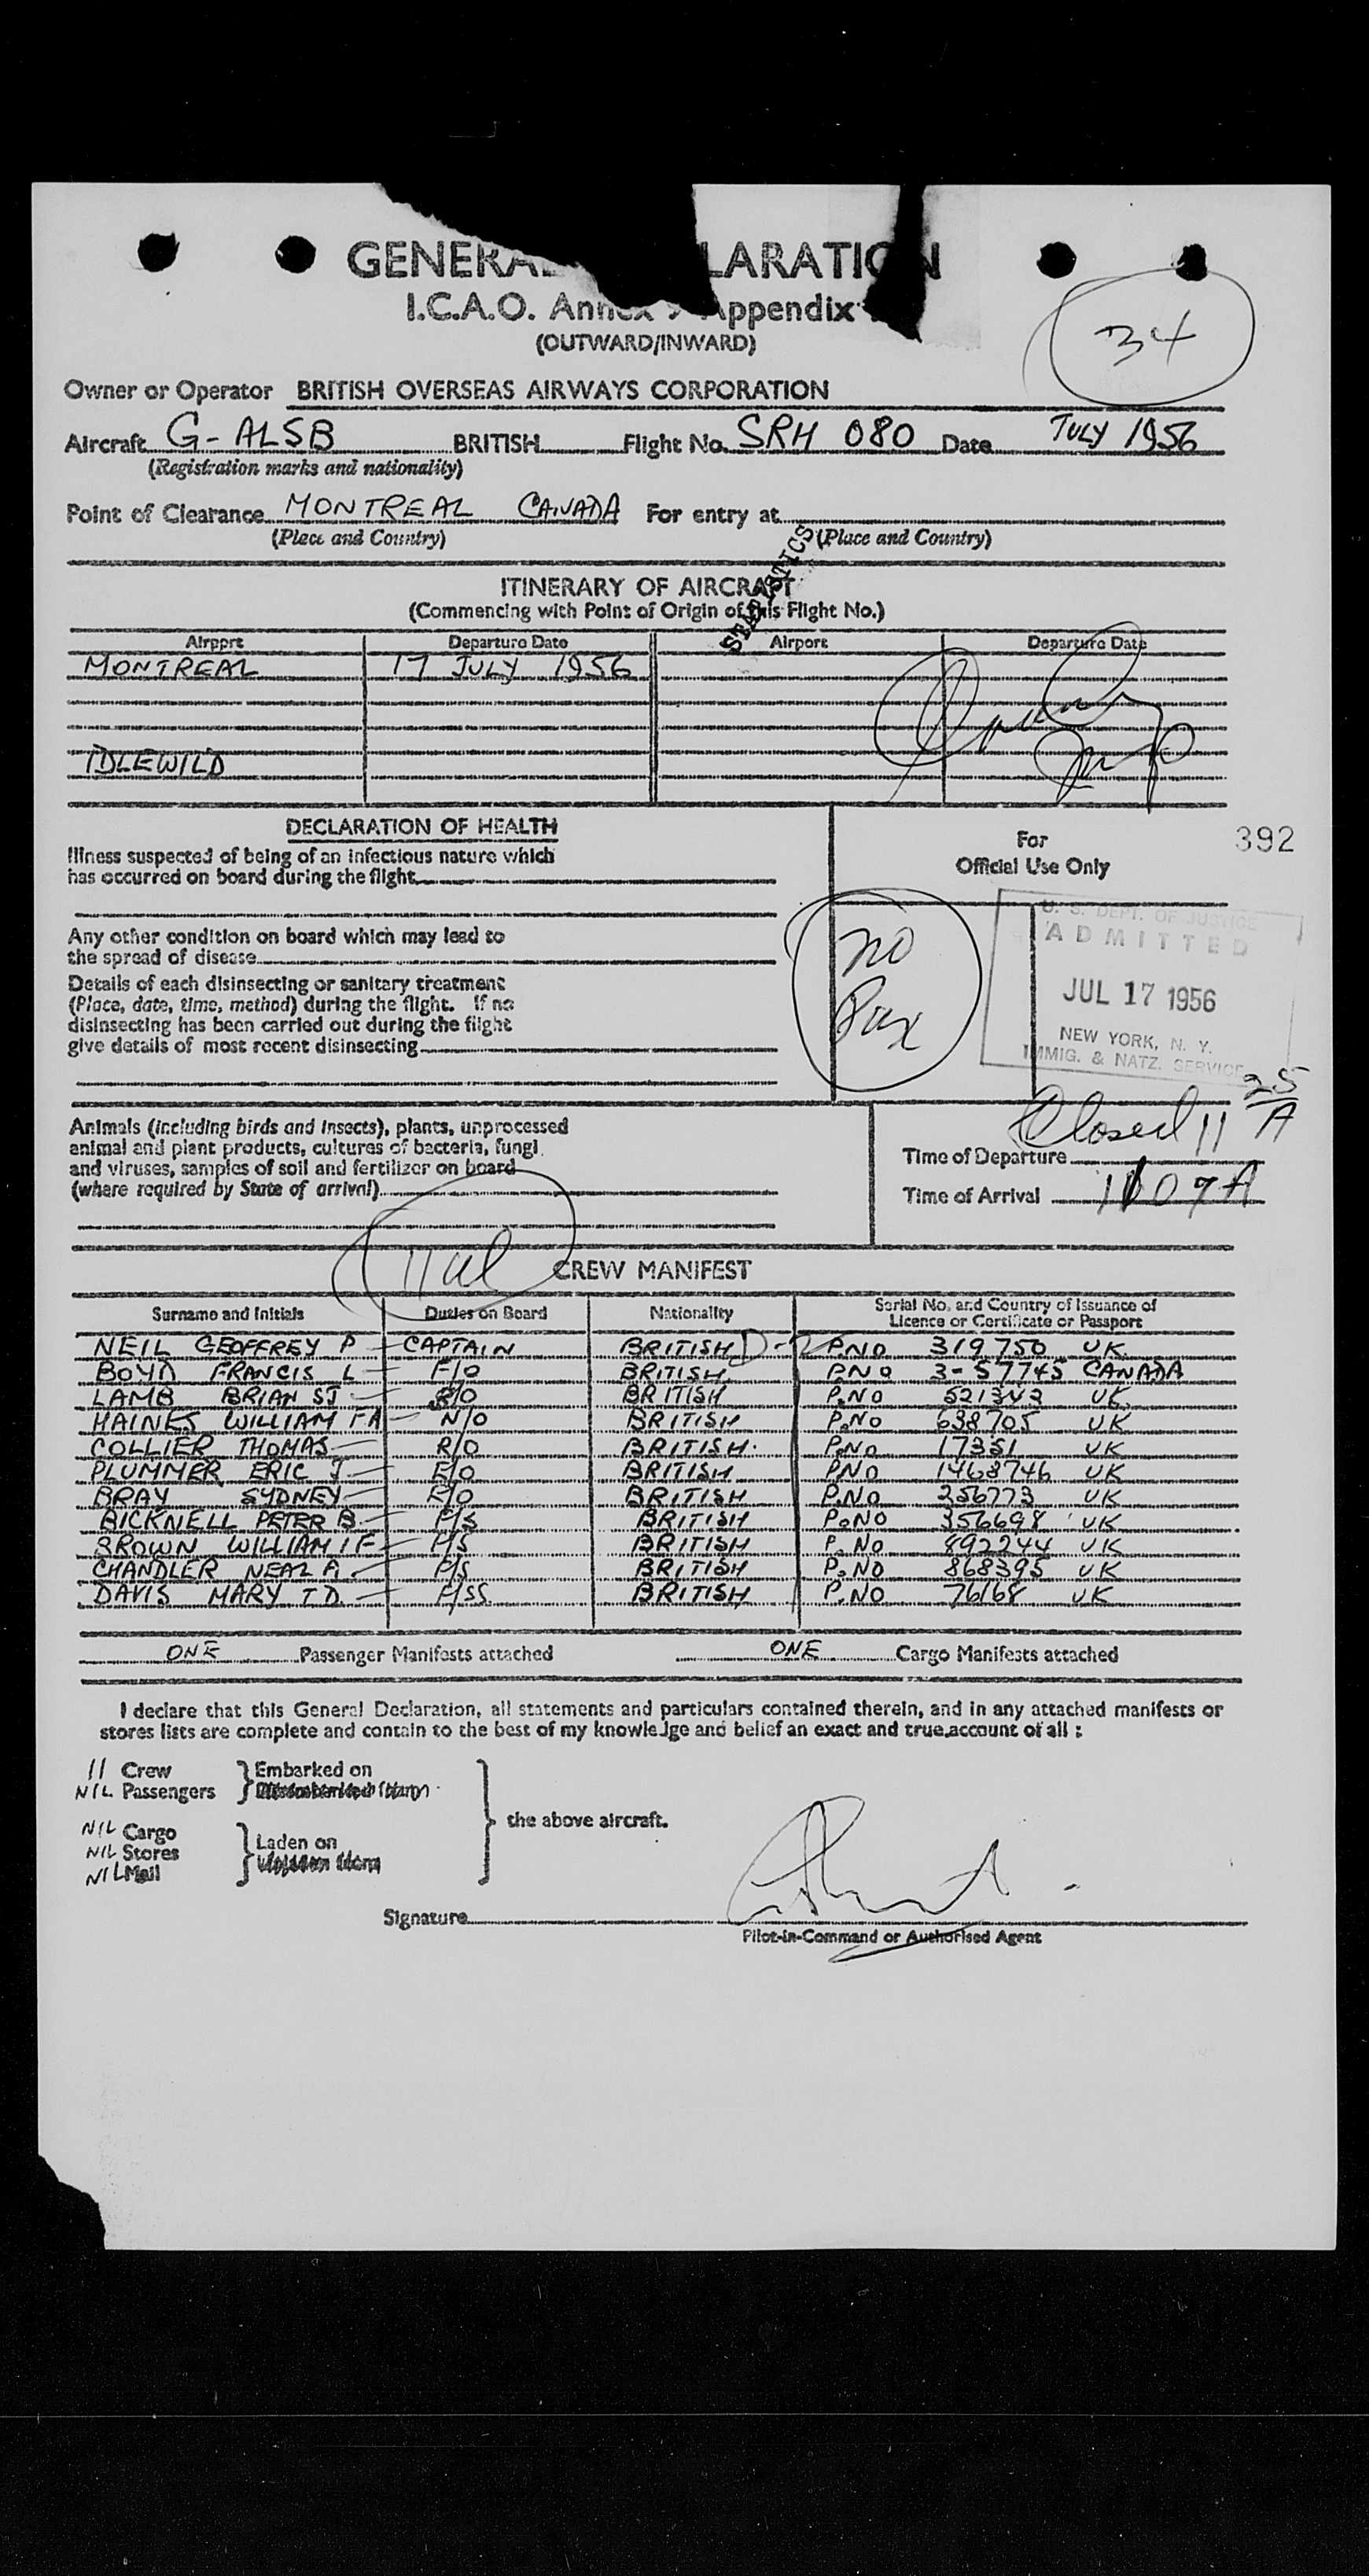 GENERAL DECLARATION
I.C.A.O. Annex 9 Appendix
(OUTWARD/INWARD)
34
Owner or Operator BRITISH OVERSEAS AIRWAYS CORPORATION
Aircraft G-ALSB BRITISH Flight No. SRH 080 Date JULY 1956
(Registration marks and nationality)
Point of Clearance MONTREAL CANADA For entry at
(Place and Country) (Place and Country)
STATISTICS
ITINERARY OF AIRCRAFT
(Commencing with Point of Origin of this Flight No.)
Airport Departure Date Airport Departure Date
MONTREAL 17 JULY 1956
IDLEWILD
DECLARATION OF HEALTH
Illness suspected of being of an infectious nature which
has occurred on board during the flight
Any other condition on board which may lead to
the spread of disease
Details of each disinsecting or sanitary treatment
(Place, date, time, method) during the flight. If no
disinsecting has been carried out during the flight
give details of most recent disinsecting
For
Official Use Only
392
no
Pax
U. S. DEPT. OF JUSTICE
ADMITTED
JUL 17 1956
NEW YORK, N. Y.
IMMIG. & NATZ. SERVICE
Animals (including birds and insects), plants, unprocessed
animal and plant products, cultures of bacteria, fungi
and viruses, samples of soil and fertilizer on board
(where required by State of arrival)
Closed 11 25/A
Time of Departure
Time of Arrival 1107A
CREW MANIFEST
Surname and Initials Duties on Board Nationality Serial No. and Country of Issuance of
Licence or Certificate or Passport
NEIL GEOFFREY P CAPTAIN BRITISH D-2 P.NO 319750 UK
BOYD FRANCIS L F/O BRITISH P.NO 3-57745 CANADA
LAMB BRIAN SJ BRITISH P.NO 521343 UK
HAINES WILLIAM FA N/O BRITISH P.NO 638705 UK
COLLIER THOMAS R/O BRITISH P.NO 17351 UK
PLUMMER ERIC J E/O BRITISH P.NO 1468746 UK
BRAY SYDNEY E/O BRITISH P.NO 256773 UK
BICKNELL PETER B F/S BRITISH P.NO 356698 UK
BROWN WILLIAM IF F/S BRITISH P.NO 892244 UK
CHANDLER NEAL A F/S BRITISH P.NO 868395 UK
DAVIS MARY TD F/SS BRITISH P.NO 76168 UK
ONE Passenger Manifests attached ONE Cargo Manifests attached
I declare that this General Declaration, all statements and particulars contained therein, and in any attached manifests or
stores lists are complete and contain to the best of my knowledge and belief an exact and true account of all :
11 Crew Embarked on
NIL Passengers
the above aircraft.
NIL Cargo
NIL Stores Laden on
NIL Mail
Signature
Pilot-in-Command or Authorised Agent